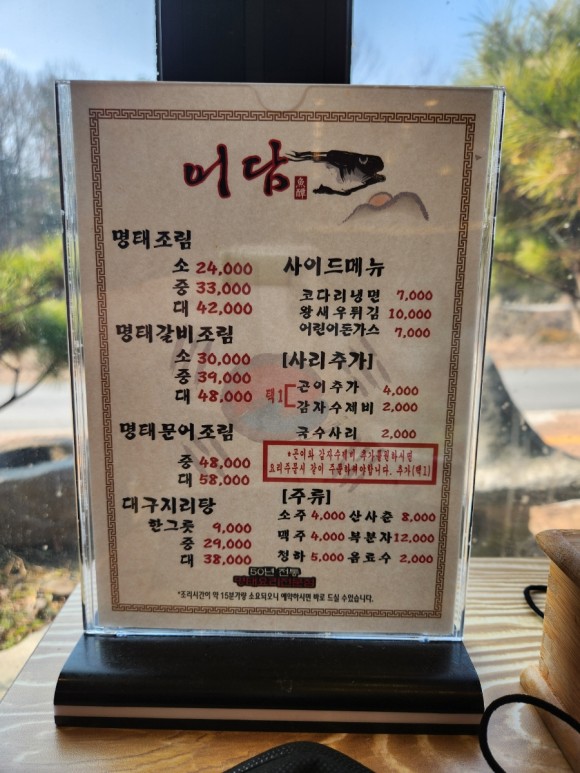 어담
魚醰
명태조림
소 24,000
중 33,000
대 42,000
명태갈비조림
소 30,000
중 39,000
대 48,000
명태문어조림
중 48,000
대 58,000
대구지리탕
한그릇 9,000
중 29,000
대 38,000
사이드메뉴
코다리냉면 7,000
왕새우튀김 10,000
어린이돈가스 7,000
[사리추가]
택1
곤이추가 4,000
감자수제비 2,000
국수사리 2,000
*곤이와 감자수제비 추가를원하시면
요리주문시 같이 주문하셔야합니다. 추가(택1)
[주류]
소주 4,000 산사춘 8,000
맥주 4,000 복분자 12,000
청하 5,000 음료수 2,000
50년 전통
*조리시간이 약 15분가량 소요되오니 예약하시면 바로 드실 수있습니다.